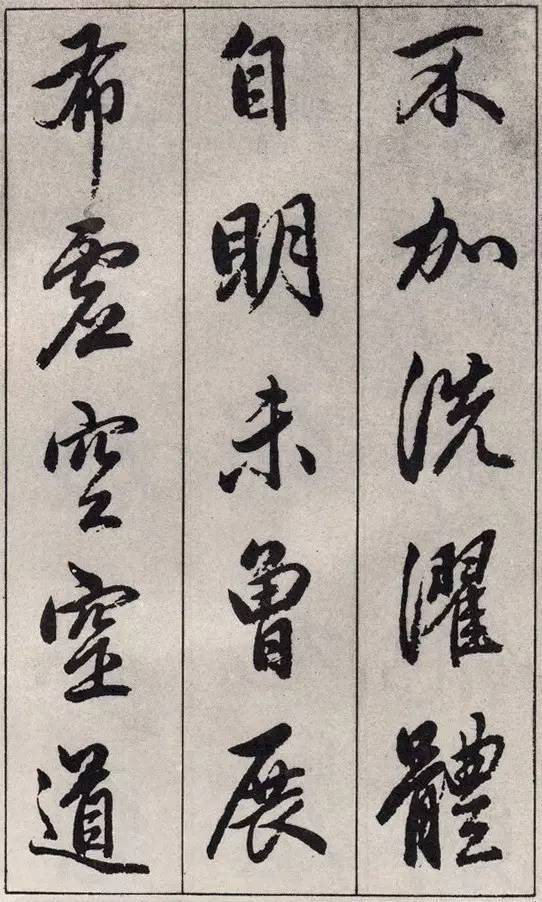 不加洗濯體
自明未曾展
希虚空窒道